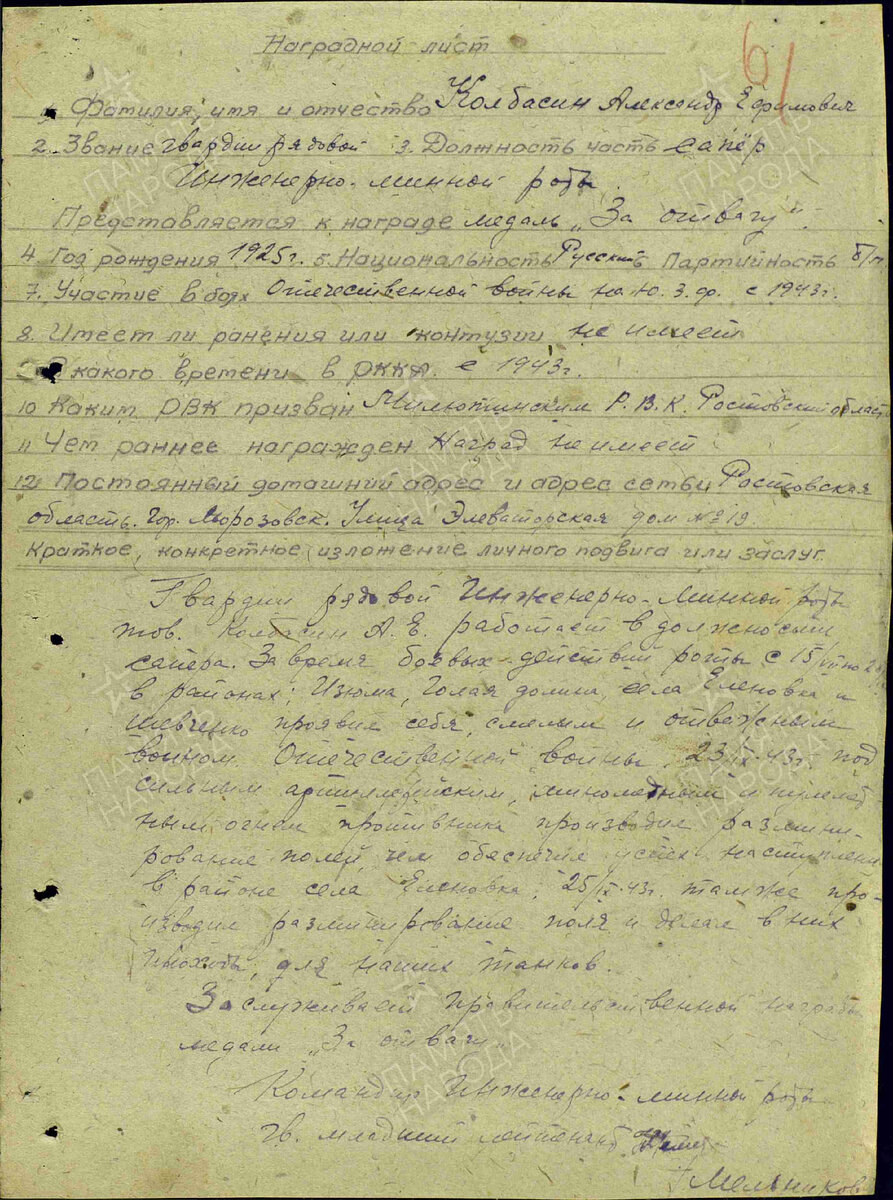 61
Наградной лист
1. Фамилия, имя и отчество Колбасин Александр Ефимович
2. Звание гвардии рядовой 3. Должность часть сапёр
Инженерно-минной роты.
Представляется к награде медаль „За отвагу".
4. Год рождения 1925г. 5. Национальность Русский 6 Партийность б/п
7. Участие в боях Отечественной войны на ю. з. фр. с 1943г.
8. Имеет ли ранения или контузии не имеет
С какого времени в РККА. с 1943г.
10 Каким РВК призван Милютинским Р. В. К. Ростовский област
11 Чем раннее награжден Наград не имеет
12 Постоянный домашний адрес и адрес семьи Ростовская
область. гор. Морозовск. Улица Элеваторская дом №19.
Краткое, конкретное изложение личного подвига или заслуг.
Гвардии рядовой Инженерно-минной роты
тов. Колбасин А. Е. работает в должности
сапера. За время боевых действий роты с 15/VII по
в районах: Изюма, Голая долина, села Еленовка и
Шевченко проявил себя, смелым и отважным
воином Отечественной войны. 23/IX-43г. под
сильным артиллерийским, минометным и пулемет
ным огнем противника производил размини-
рование полей, чем обеспечил успех наступлени
в районе села Еленовка; 25/IX-43г. там же про-
изводил разминирование поля и делал в них
проходы, для наших танков.
Заслуживает правительственной награды
медали „За отвагу".
Командир Инженерно-минной роты
гв. младший лейтенант
Мельников
ПАМЯТЬ НАРОДА